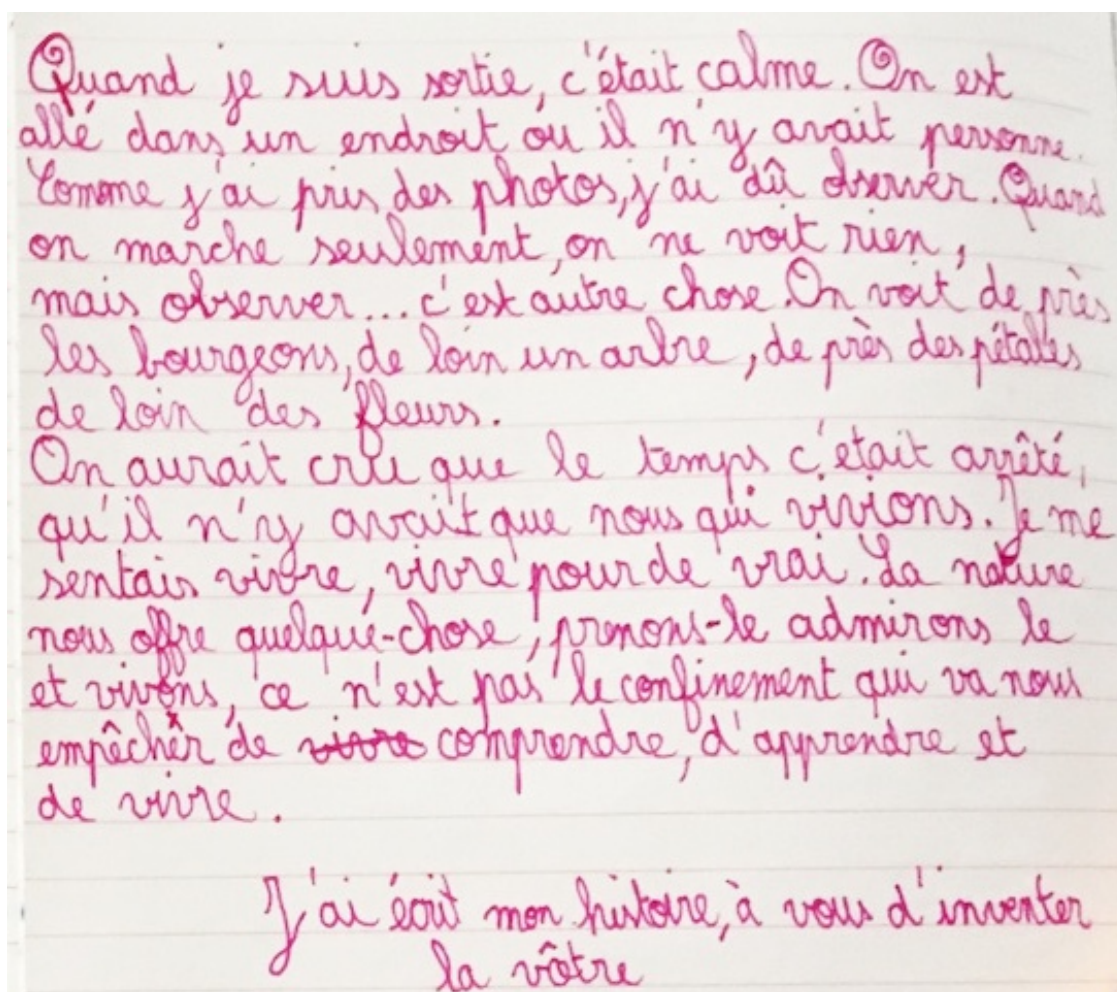 Quand je suis sortie, c'était calme. On est
allé dans un endroit ou il n'y avait personne.
Comme j'ai pris des photos, j'ai dû observer. Quand
on marche seulement, on ne voit rien,
mais observer... c'est autre chose. On voit de près
les bourgeons, de loin un arbre, de près des pétales
de loin des fleurs.
On aurait cru que le temps c'était arrêté,
qu'il n'y avait que nous qui vivions. Je me
sentais vivre, vivre pour de vrai. La nature
nous offre quelque-chose, prenons-le admirons le
et vivons, ce n'est pas le confinement qui va nous
empêcher de vivre comprendre, d'apprendre et
de vivre.
J'ai écrit mon histoire, à vous d'inventer
la vôtre